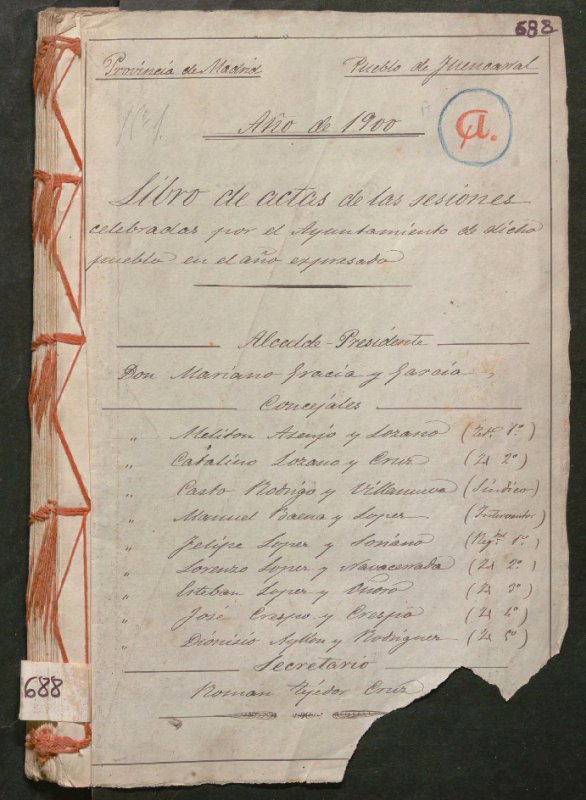 688
Provincia de Madrid
Pueblo de Fuencarral
Nº 1.
Año de 1900
A.
Libro de actas de las sesiones
celebradas por el Ayuntamiento de dicho
pueblo en el año expresado
Alcalde-Presidente
Don Mariano Gracia y García
Concejales
" Meliton Asenjo y Lozano (Tete. 1º)
" Catalino Lozano y Cruz (Id 2º)
" Casto Rodrigo y Villanueva (Síndico)
" Manuel Baena y Lopez (Interventor)
" Felipe Lopez y Soriano (Regr. 1º)
" Lorenzo Lopez y Navacerrada (Id 2º)
" Esteban Lopez y (Id 3º)
" José Crespo y Crespo (Id 4º)
" Dionisio Ayllon y Rodriguez (Id 5º)
Secretario
Roman Tejedor Cruz
688